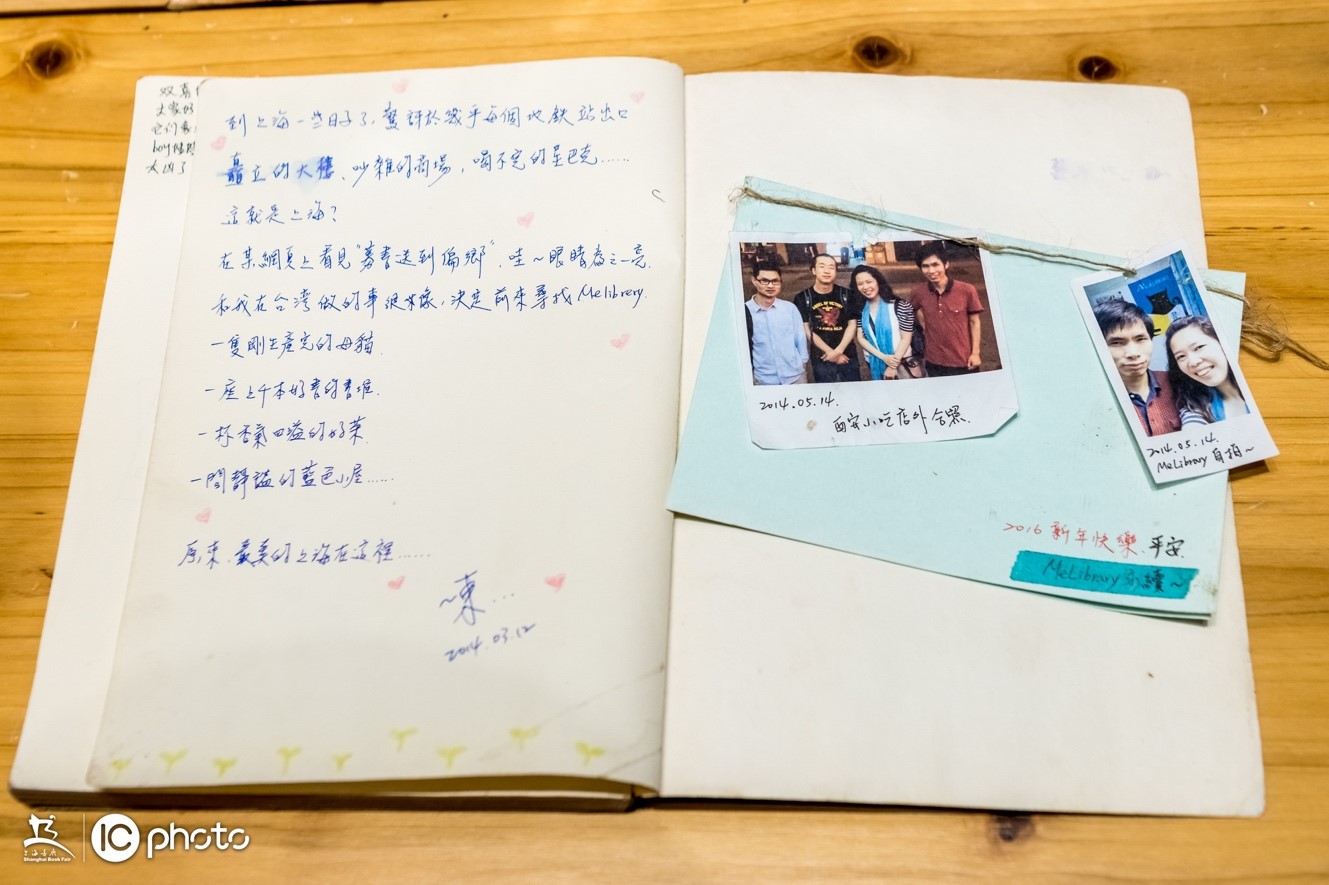 双喜
大家好
它们
boy
太凶了
到上海一些日子了,驚訝於幾乎每個地鉄站出口
矗立的大樓、吵雜的商場,喝不完的星巴克……
這就是上海?
在某網頁上看見"募書送到偏鄉",哇~眼睛為之一亮.
和我在台灣做的事很像,決定前來尋找Melibrery.
一隻剛生產完的母貓.
一座上千本好書的書堆.
一杯香氣四溢的好茶.
一間靜謐的藍色小屋……
原來、最美的上海在這裡……
~東…
2014.03.12
2014.05.14.
西安小吃店外合照.
2014.05.14.
MeLibrary自拍~
2016 新年快樂、平安.
MeLibrary永續~
上海书展
Shanghai Book Fair
IC photo